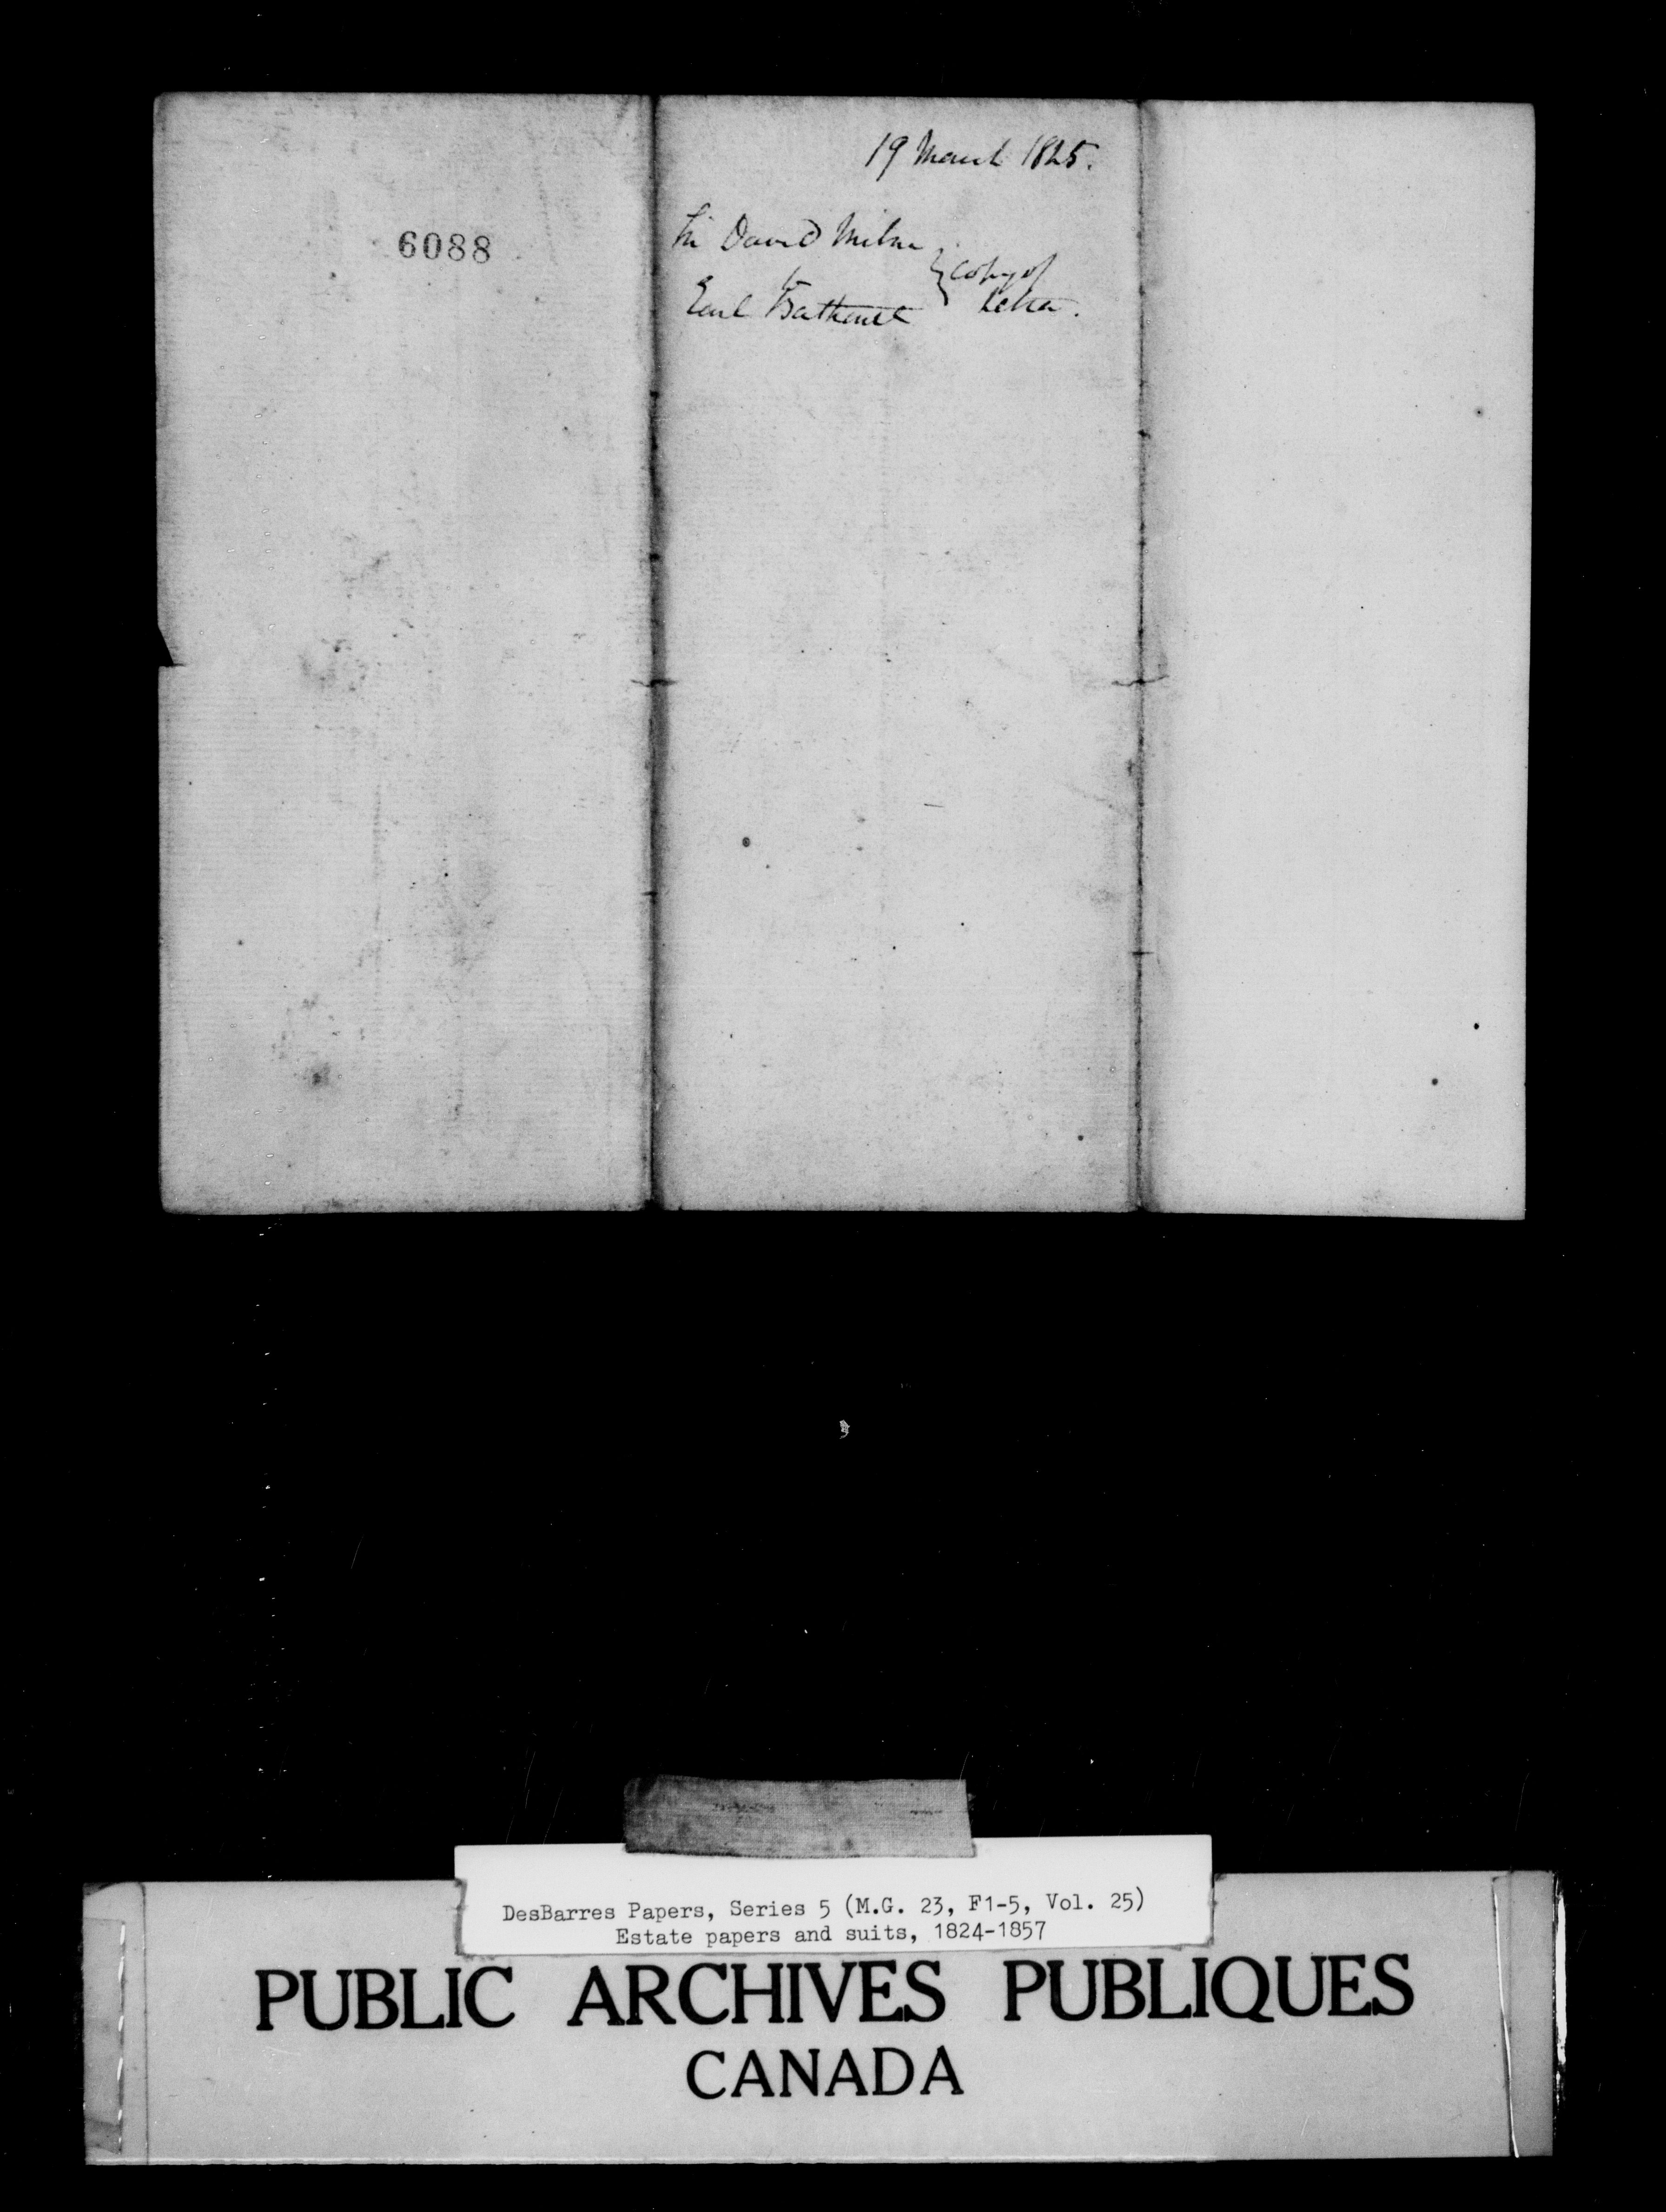 6088
19 March 1825.
Sir David Milne
to
Earl Bathurst
} Copy of
Letter.
DesBarres Papers, Series 5 (M.G. 23, F1-5, Vol. 25)
Estate papers and suits, 1824-1857
PUBLIC ARCHIVES PUBLIQUES
CANADA